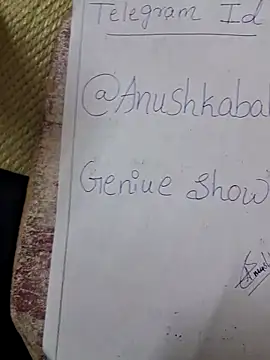 Telegram Id
@Anushkabal
Geniue Show